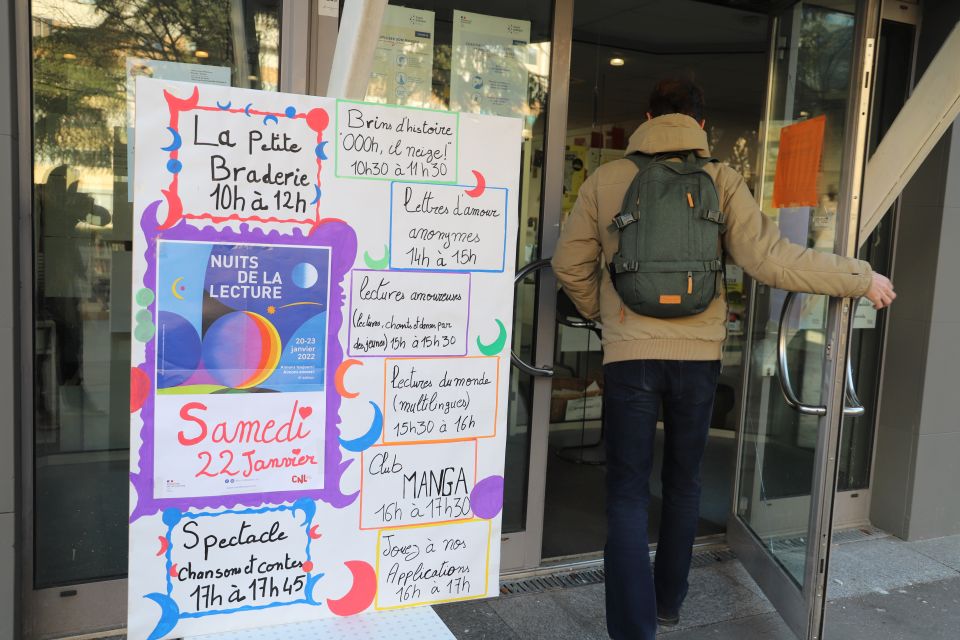 La Petite
Braderie
10h à 12h
Brins d'histoire
"OOOh, il neige!"
10h30 à 11h30
Lettres d'amour
anonymes
14h à 15h
NUITS
DE LA
LECTURE
20-23
janvier
2022
Aimons toujours!
Aimons encore!
6e édition
Samedi
22 Janvier
CNL
Lectures amoureuses
(lectures, chants et danses par
des jeunes) 15h à 15h30
Lectures du monde
(multilingues)
15h30 à 16h
Club
MANGA
16h à 17h30
Spectacle
Chansons et contes
17h à 17h45
Jouez à nos
Applications
16h à 17h